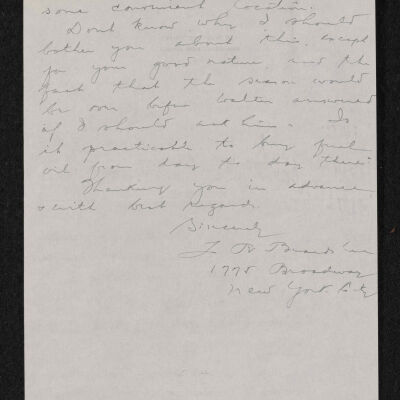 some convenient location.
Dont know why I should
bother you about this, except
for your good nature, and the
fact that the season would
be over before Walter answered
if I should ask him. Is
it practicable to buy fuel
oil from day to day there?
Thanking you in advance
& with best regards.
Sincerely
1775 Broadway
New York City